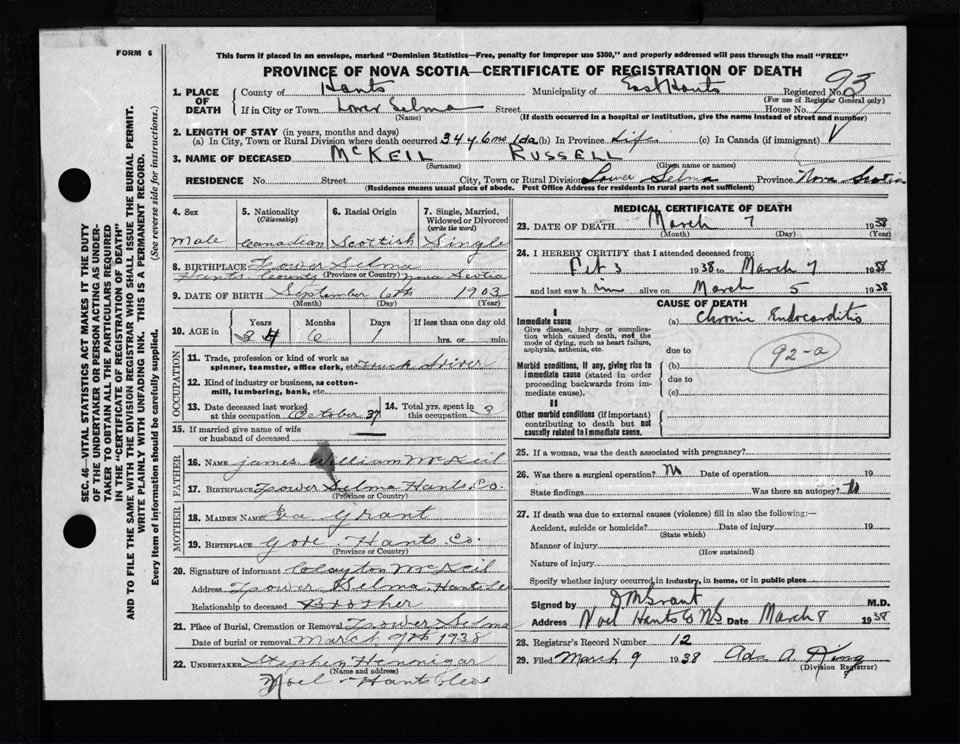 FORM 6
This form if placed in an envelope, marked "Dominion Statistics—Free, penalty for improper use $300," and properly addressed will pass through the mail "FREE"
PROVINCE OF NOVA SCOTIA—CERTIFICATE OF REGISTRATION OF DEATH
93
1. PLACE OF DEATH County of Hants Municipality of East Hants Registered No.
(For use of Registrar General only)
If in City or Town Lower Selma Street House No.
(Name) (If death occurred in a hospital or institution, give the name instead of street and number)
2. LENGTH OF STAY (in years, months and days)
(a) In City, Town or Rural Division where death occurred 34 y 6 mo 1 da (b) In Province Life (c) In Canada (if immigrant)
3. NAME OF DECEASED McKEIL RUSSELL
(Surname) (Given name or names)
RESIDENCE No. Street City, Town or Rural Division Lower Selma Province Nova Scotia
(Residence means usual place of abode. Post Office Address for residents in rural parts not sufficient)
4. Sex 5. Nationality (Citizenship) 6. Racial Origin 7. Single, Married, Widowed or Divorced (write the word)
Male Canadian Scottish Single
8. BIRTHPLACE Lower Selma
Hants County (Province or Country) Nova Scotia
9. DATE OF BIRTH September 6th 1903
(Month) (Day) (Year)
10. AGE in Years Months Days If less than one day old
34 6 1 hrs. or min.
OCCUPATION
11. Trade, profession or kind of work as spinner, teamster, office clerk, etc. Truck Driver
12. Kind of industry or business, as cotton-mill, lumbering, bank, etc.
13. Date deceased last worked at this occupation October 37 14. Total yrs. spent in this occupation 3
15. If married give name of wife or husband of deceased
FATHER
16. NAME James William McKeil
17. BIRTHPLACE Lower Selma Hants Co.
(Province or Country)
MOTHER
18. MAIDEN NAME Eva Grant
19. BIRTHPLACE Gore Hants Co.
(Province or Country)
20. Signature of informant Clayton McKeil
Address Lower Selma Hants Co
Relationship to deceased Brother
21. Place of Burial, Cremation or Removal Lower Selma
Date of burial or removal March 9th 1938
22. UNDERTAKER Stephen Hennigar
(Name and address)
Noel Hants Co
MEDICAL CERTIFICATE OF DEATH
23. DATE OF DEATH March 7 1938
(Month) (Day) (Year)
24. I HEREBY CERTIFY that I attended deceased from:
Feb 3 1938 to March 7 1938
and last saw him alive on March 5 1938
CAUSE OF DEATH
I
Immediate cause (a) Chronic Endocarditis
Give disease, injury or complication which caused death, not the mode of dying, such as heart failure, asphyxia, asthenia, etc.
due to
92-a
Morbid conditions, if any, giving rise to immediate cause (stated in order proceeding backwards from immediate cause).
(b)
due to
(c)
II
Other morbid conditions (if important) contributing to death but not causally related to immediate cause.
25. If a woman, was the death associated with pregnancy?
26. Was there a surgical operation? No Date of operation 19
State findings Was there an autopsy?
27. If death was due to external causes (violence) fill in also the following:—
Accident, suicide or homicide? Date of injury 19
(State which)
Manner of injury
(How sustained)
Nature of injury
Specify whether injury occurred in industry, in home, or in public place
Signed by D M Grant M.D.
Address Noel Hants Co NS Date March 8 1938
28. Registrar's Record Number 12
29. Filed March 9 1938 Ada A. King
(Division Registrar)
SEC. 46—VITAL STATISTICS ACT MAKES IT THE DUTY
OF THE UNDERTAKER OR PERSON ACTING AS UNDER-
TAKER TO OBTAIN ALL THE PARTICULARS REQUIRED
IN THE "CERTIFICATE OF REGISTRATION OF DEATH"
AND TO FILE THE SAME WITH THE DIVISION REGISTRAR WHO SHALL ISSUE THE BURIAL PERMIT.
WRITE PLAINLY WITH UNFADING INK. THIS IS A PERMANENT RECORD.
Every item of information should be carefully supplied. (See reverse side for instructions.)